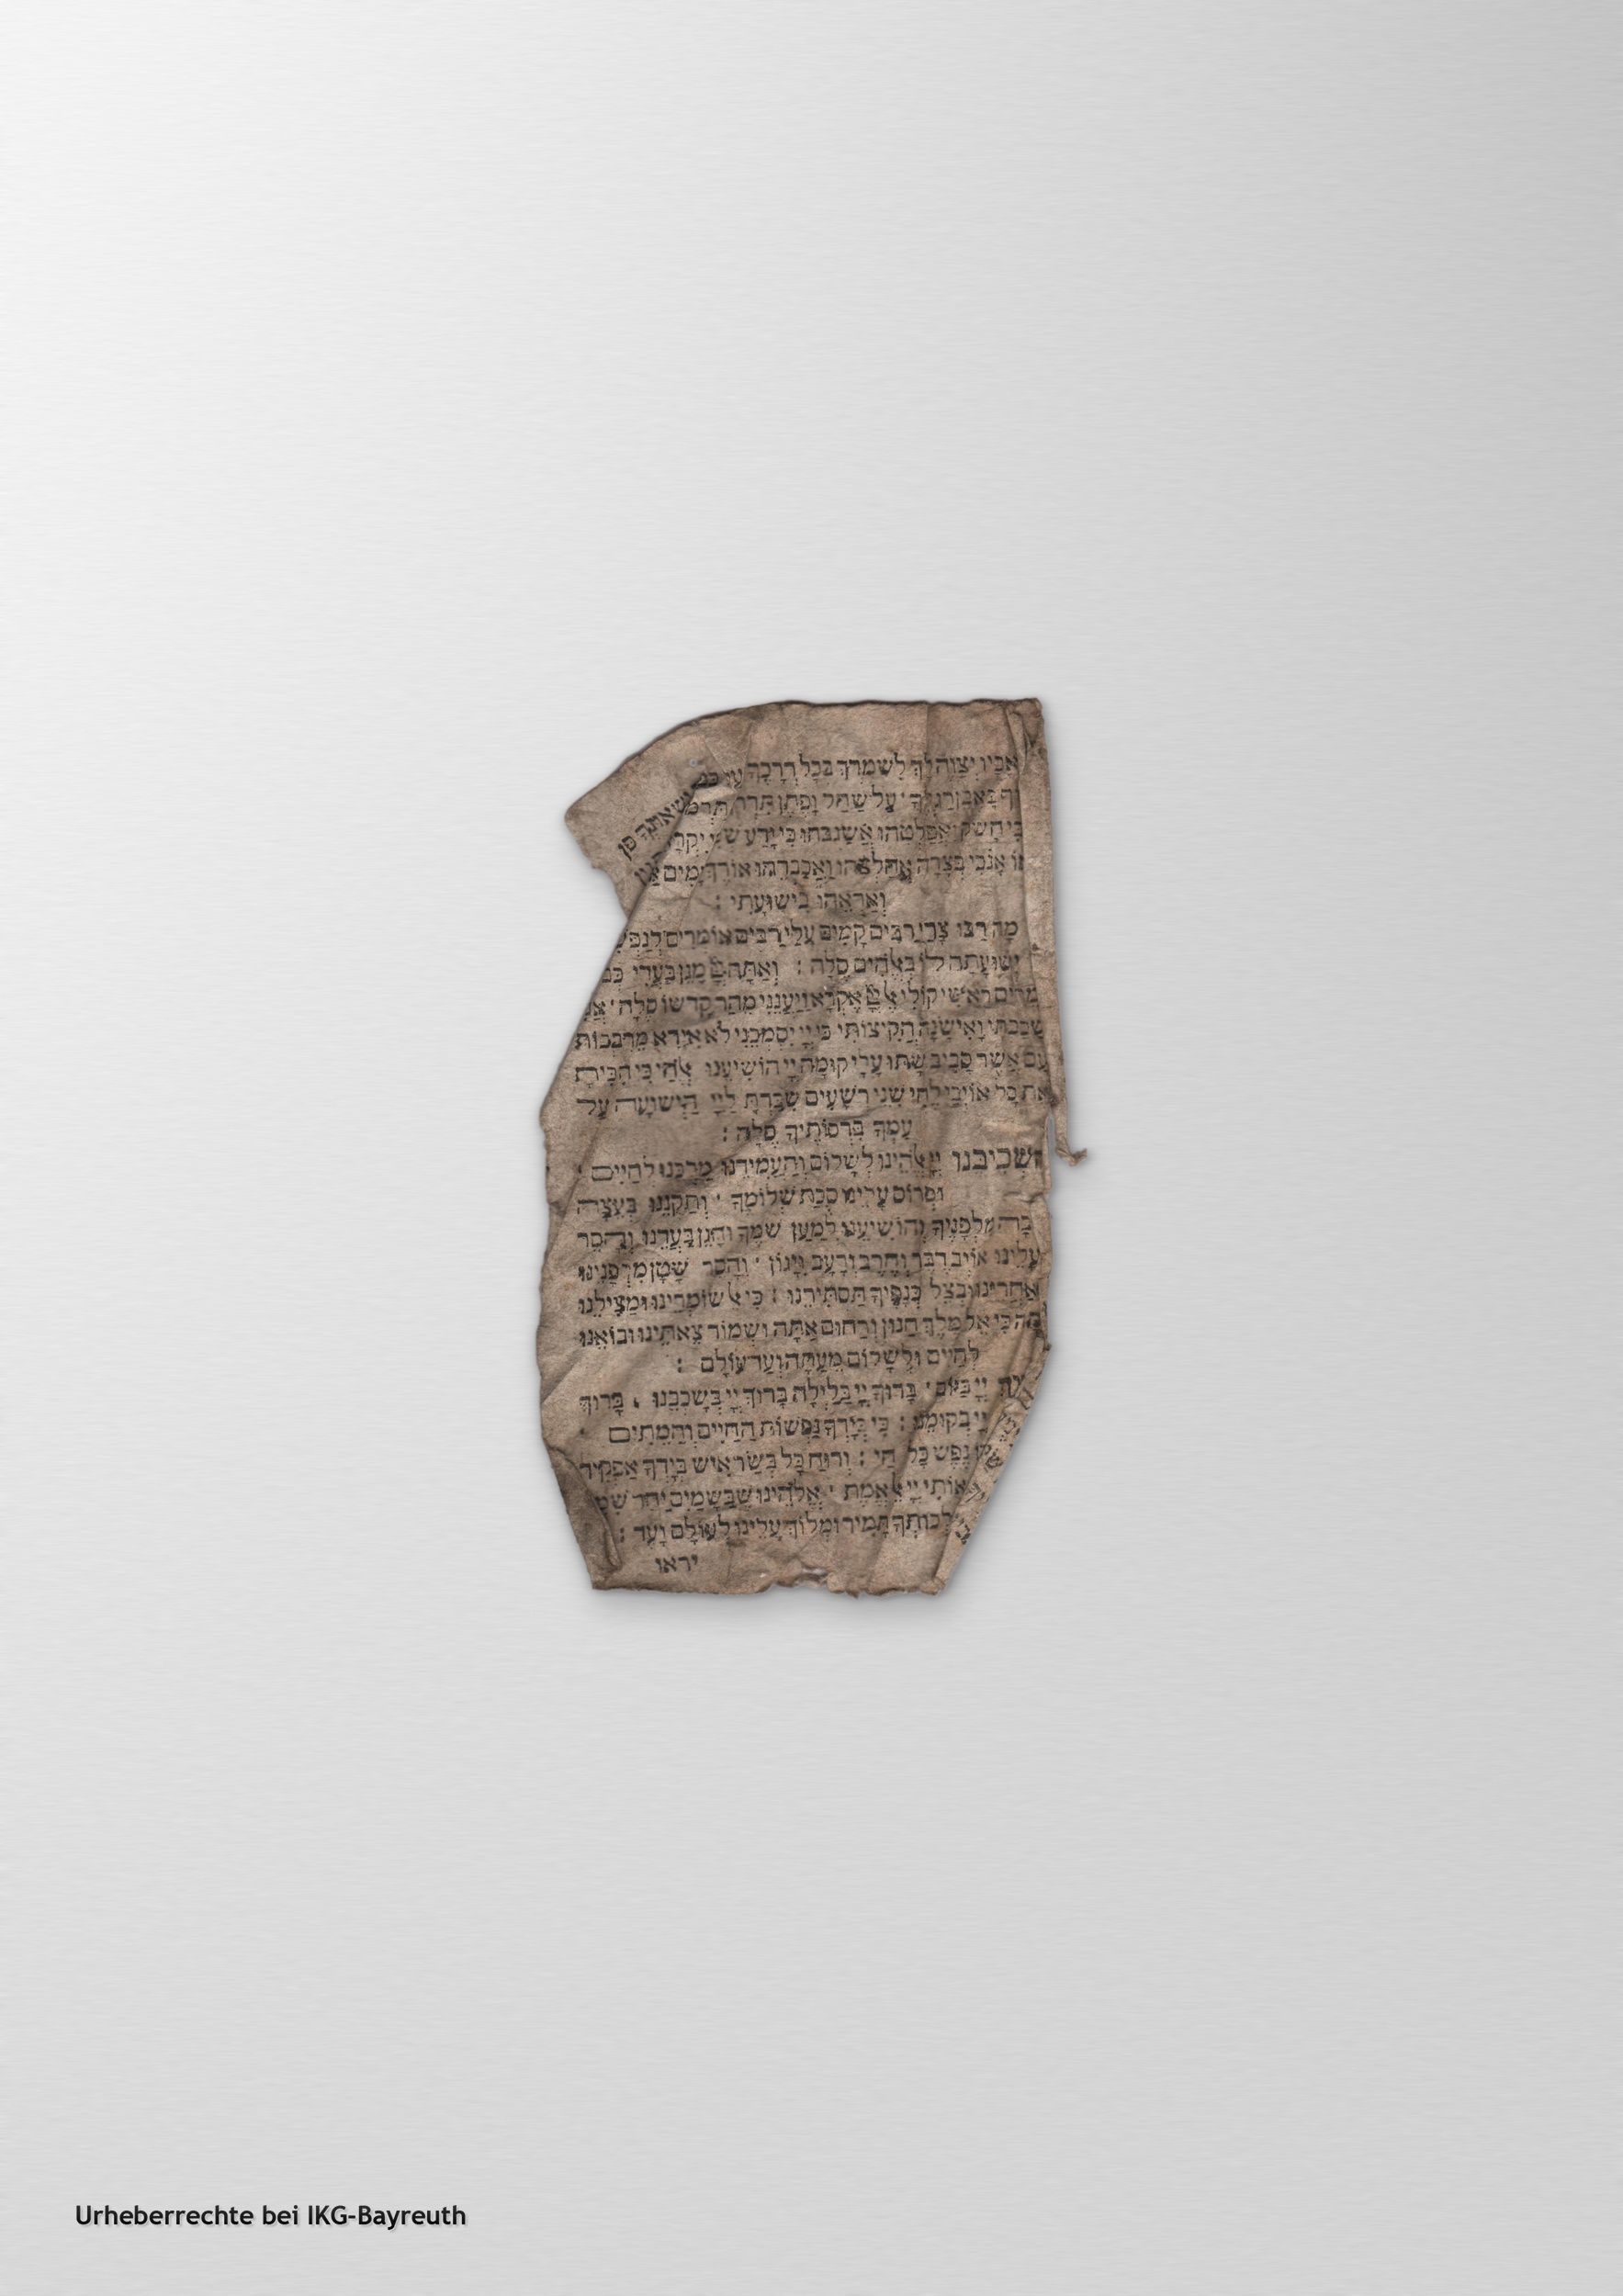 יצוה לך לשמרך בכל דרכך על כפ
ישאונך פן
באבן רגלך ׳ על שחל ופתן תדרך תרמס
כי חשק ואפלטהו אשגבהו כי ידע שמי יקרא
אנכי בצרה אחלצהו ואכבדהו אורך ימים
וְאַרְאֵהוּ בִּישׁוּעָתִי :
מה רבו צרי רבים קמים עלי רבים אומרים לנפש
ישועתה לו באלהים סלה : ואתה מגן בעדי
ראשי קולי אל אקרא ויענני מהר קדשו סלה ׳ אני
שכבתי ואישנה הקיצותי כי ייי יסמכני לא אירא מרבבות
עם אשר סביב שתו עלי קומה ייי הושיעני אלהי כי הכית
את כל אויבי לחי שני רשעים שברת לייי הישועה על
עַמְּךָ בִרְכוֹתֶיךָ סֶּלָה :
השכיבנו ייי אלהינו לשלום והעמידנו מלכנו לחיים ׳
ופרוס עלינו סכת שלומך ׳ ותקננו בעצה
מלפניך והושיענו למען שמך והגן בעדנו והסר
עלינו אויב דבר וחרב ורעב ויגון ׳ והסר שטן מלפנינו
ובצל כנפיך תסתירנו : כי אל שומרינו ומצילנו
כי אל מלך חנון ורחום אתה ושמור צאתינו ובואנו
לחיים ולשלום מעתה ועד עולם :
ייי ביום ׳ ברוך ייי בלילה ברוך ייי בשכבנו ׳ ברוך
ייי בקומנו : כי בידך נפשות החיים והמתים
נפש כל חי : ורוח כל בשר איש בידך אפקיד
אותי ייי אל אמת ׳ אלהינו שבשמים יחד
תמיד ומלוך עלינו לעולם ועד :
יראו
Urheberrechte bei IKG-Bayreuth